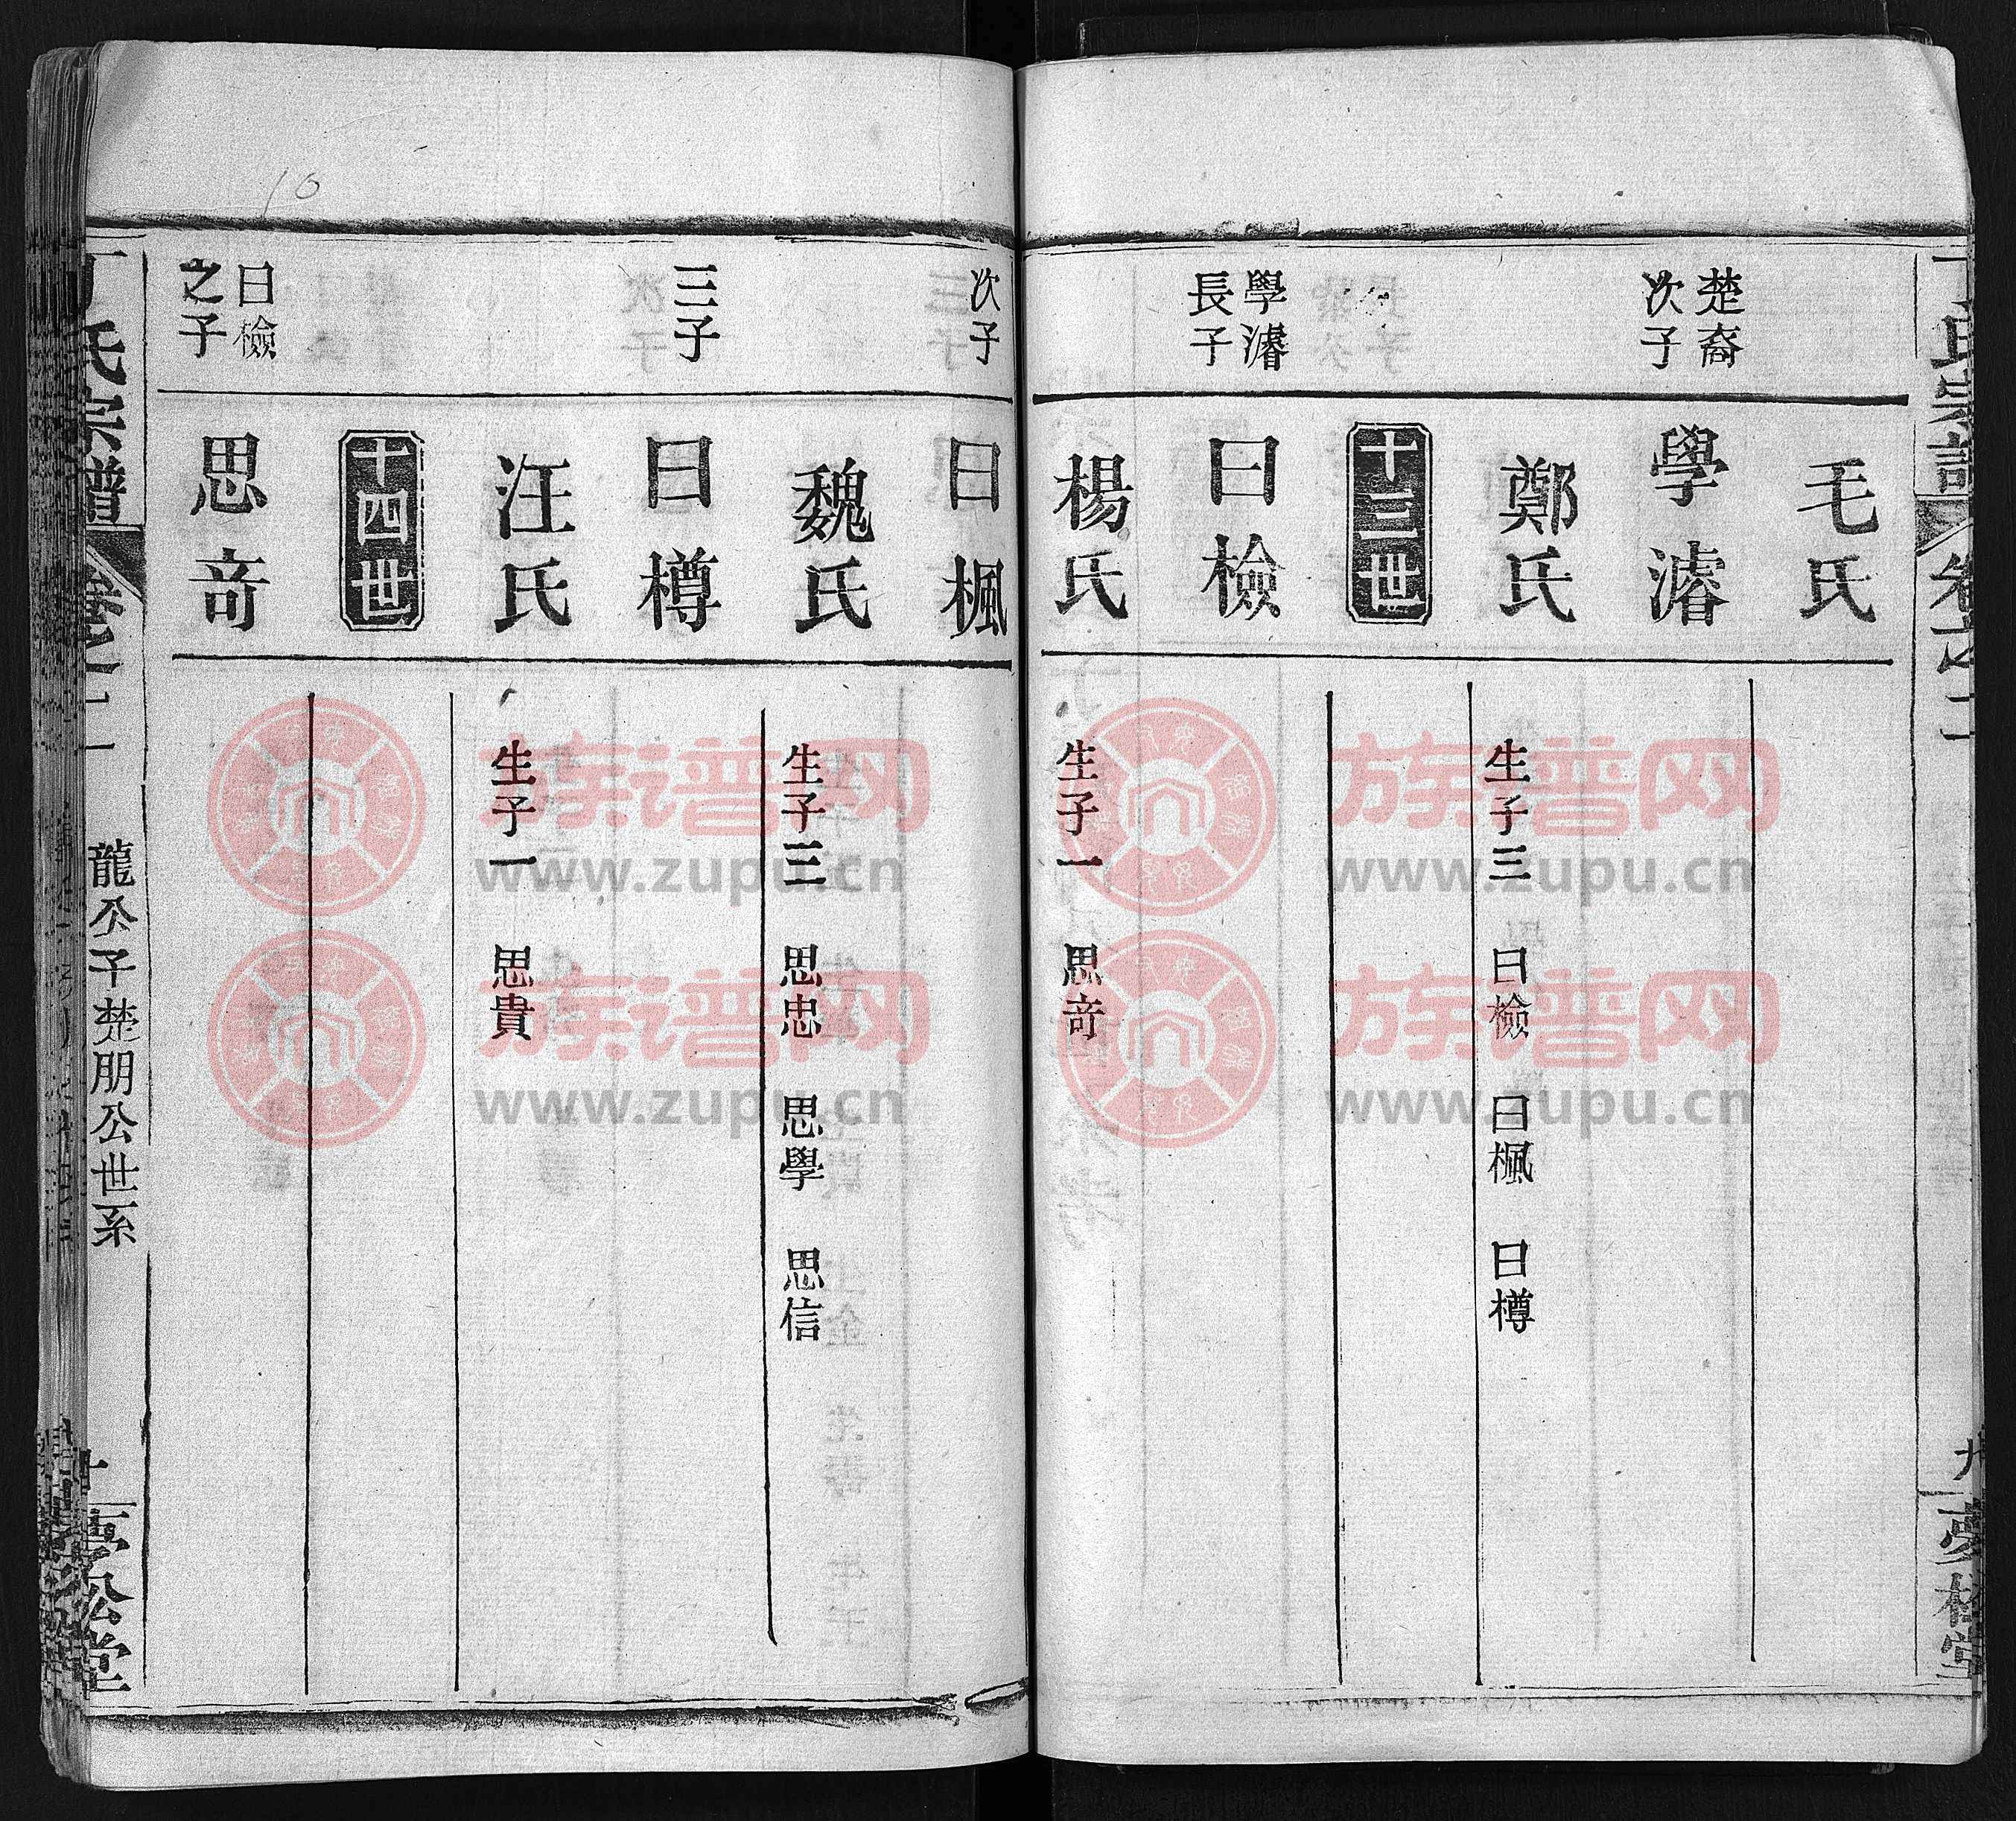 丁氏宗譜
卷之二
九
夢松堂
毛氏
楚裔
次子
學濬
鄭氏
生子三 曰檢 曰楓 曰樽
十三世
學濬
長子
曰檢
楊氏
生子一 思竒
次子
曰楓
魏氏
生子三 思忠 思學 思信
三子
曰樽
汪氏
生子一 思貴
十四世
曰檢
之子
思竒
丁氏宗譜
卷之二
龍公子楚朋公世系
十
夢松堂
10
族谱网
www.zupu.cn
族谱网
www.zupu.cn
族谱网
www.zupu.cn
族谱网
www.zupu.cn